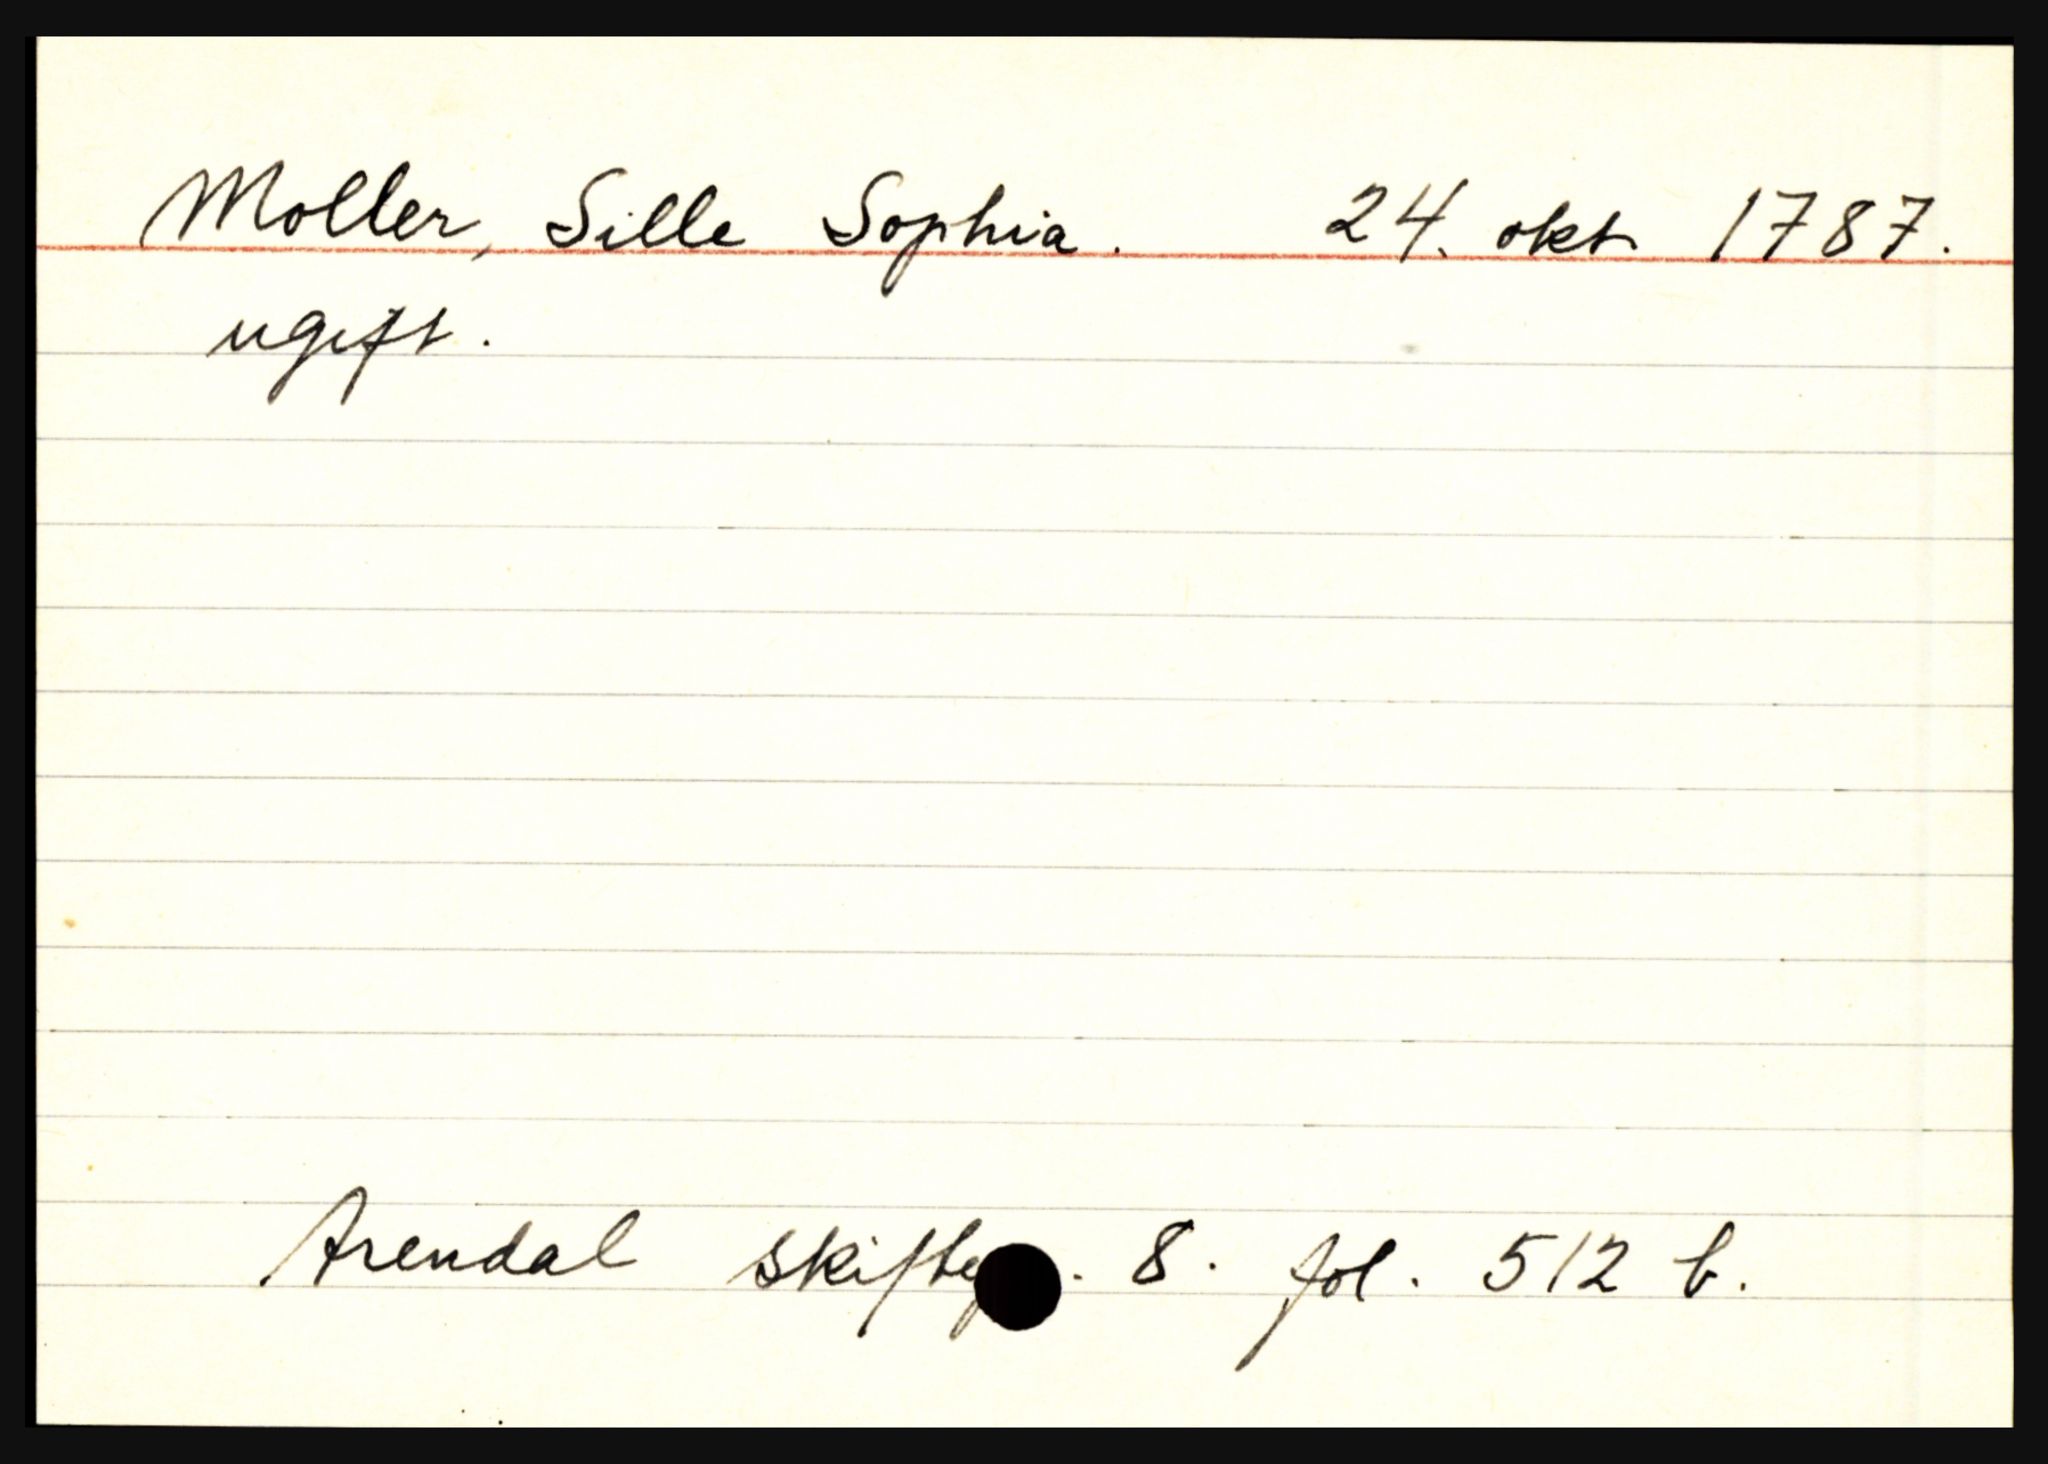 Moller, Sille Sophia. 24. okt. 1787.
ugift.
Arendal skifte . 8. fol. 512 b.